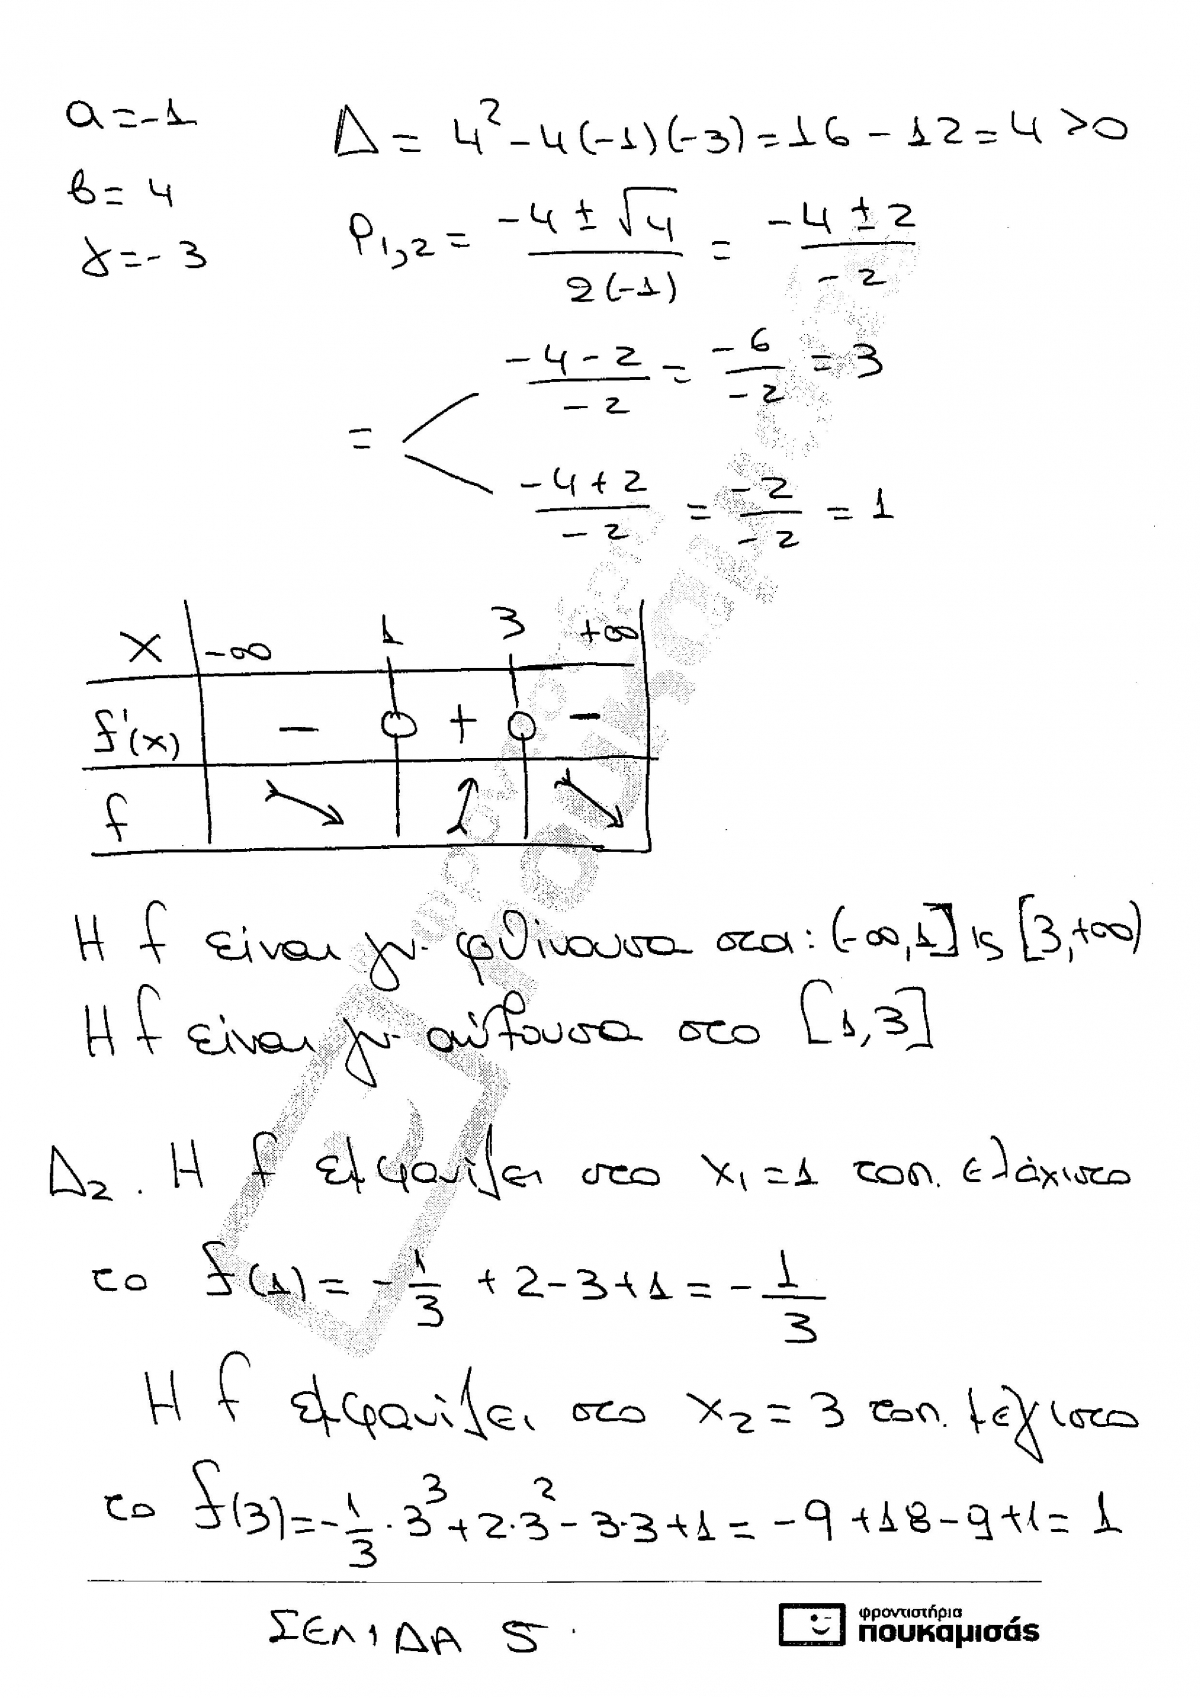 α = -1
Δ = 4² - 4(-1)(-3) = 16 - 12 = 4 > 0
β = 4
γ = -3
ρ1,2 = (-4 ± √4) / (2(-1)) = (-4 ± 2) / (-2)
= (-4 - 2) / (-2) = (-6) / (-2) = 3
(-4 + 2) / (-2) = (-2) / (-2) = 1
x -∞ 1 3 +∞
f'(x) - + -
f ↘ ↗ ↘
Η f είναι γν. φθίνουσα στα: (-∞, 1] ϗ [3, +∞)
Η f είναι γν. αύξουσα στο [1, 3]
Δ2. Η f εμφανίζει στο x₁ = 1 τοπ. ελάχιστο
το f(1) = -1/3 + 2 - 3 + 1 = -1/3
Η f εμφανίζει στο x₂ = 3 τοπ. μέγιστο
το f(3) = -1/3 · 3³ + 2·3² - 3·3 + 1 = -9 + 18 - 9 + 1 = 1
ΣΕΛΙΔΑ 5.
φροντιστήρια
πουκαμισάς